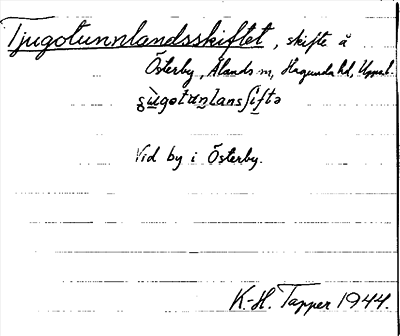 Tjugotunnlandsskiftet, skifte å
Österby, Ålands sn, Hagunda hd, Uppsal.
Vid by i Österby.
K.-H. Tapper 1944.